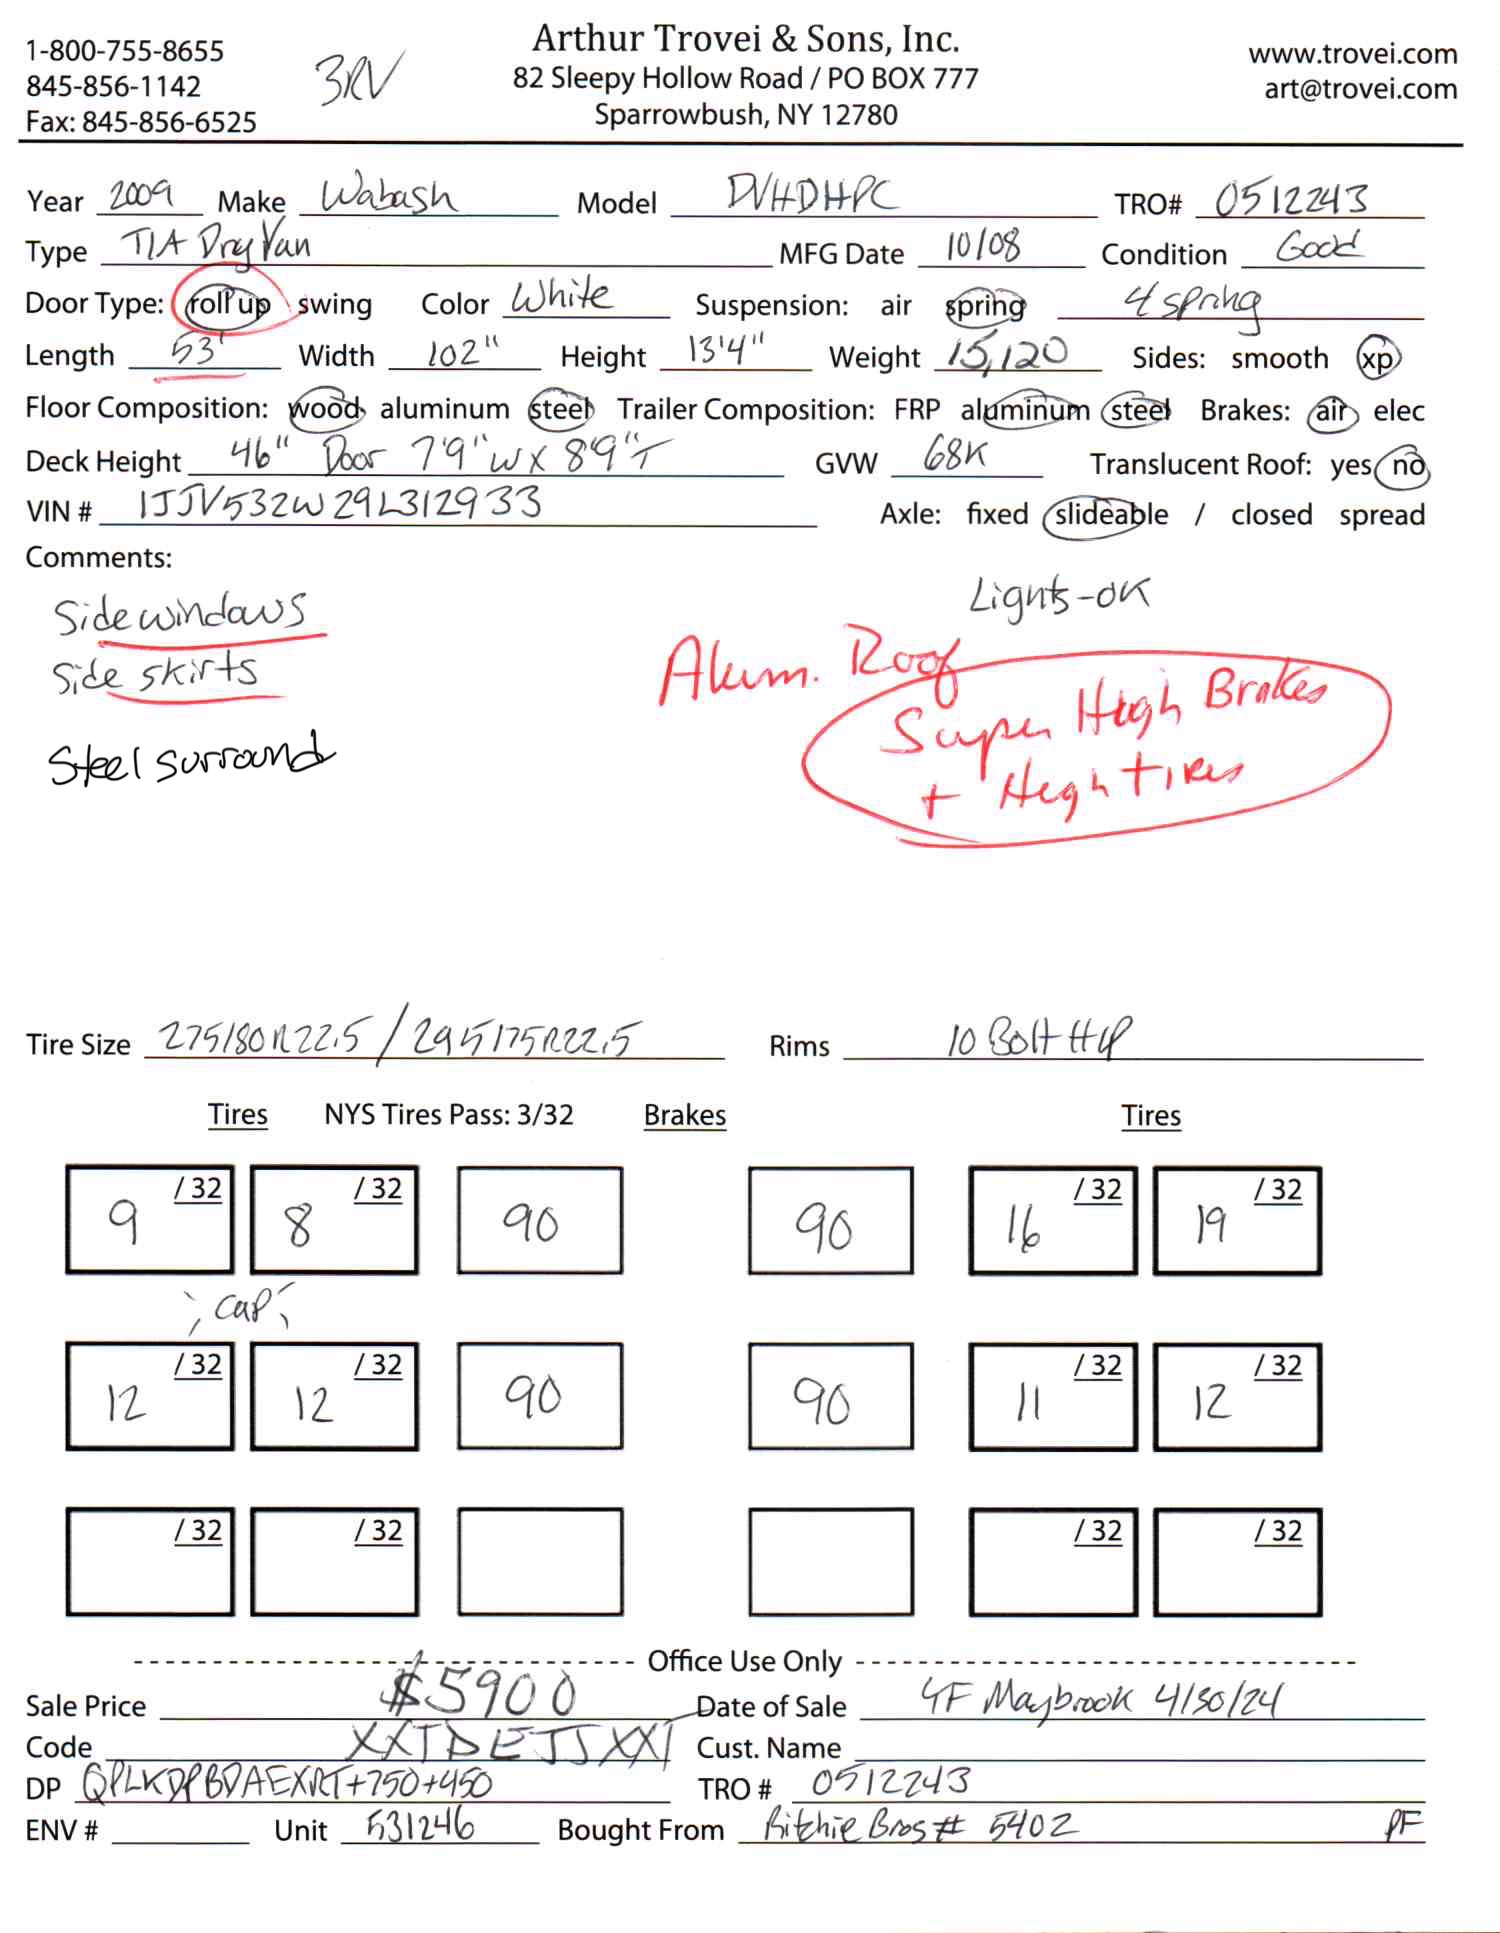 1-800-755-8655
845-856-1142
Fax: 845-856-6525
3RV
Arthur Trovei & Sons, Inc.
82 Sleepy Hollow Road / PO BOX 777
Sparrowbush, NY 12780
www.trovei.com
art@trovei.com
Year 2009 Make Wabash Model DVHDHPC TRO# 0512243
Type T/A Dry Van MFG Date 10/08 Condition Good
Door Type: roll up swing Color White Suspension: air spring 4 spring
Length 53' Width 102" Height 13'4" Weight 15,120 Sides: smooth xp
Floor Composition: wood aluminum steel Trailer Composition: FRP aluminum steel Brakes: air elec
Deck Height 46" Door 7'9"W X 8'9"T GVW 68K Translucent Roof: yes no
VIN # 1JJV532W29L312933 Axle: fixed slideable / closed spread
Comments:
Lights-OK
Side windows
Side skirts
Alum. Roof
Super High Brakes
+ High Tires
Steel surround
Tire Size 275/80R22.5 / 295/75R22.5 Rims 10 Bolt HP
Tires NYS Tires Pass: 3/32 Brakes Tires
9 /32 8 /32 90 90 16 /32 19 /32
Cap
12 /32 12 /32 90 90 11 /32 12 /32
/32 /32 /32 /32
Office Use Only
Sale Price $5900 Date of Sale YF Maybrook 4/30/24
Code XXTDETJXXT Cust. Name
DP QPLKDPBDAEXRT+750+450 TRO # 0512243
ENV # Unit 531246 Bought From Ritchie Bros # 5402 PF